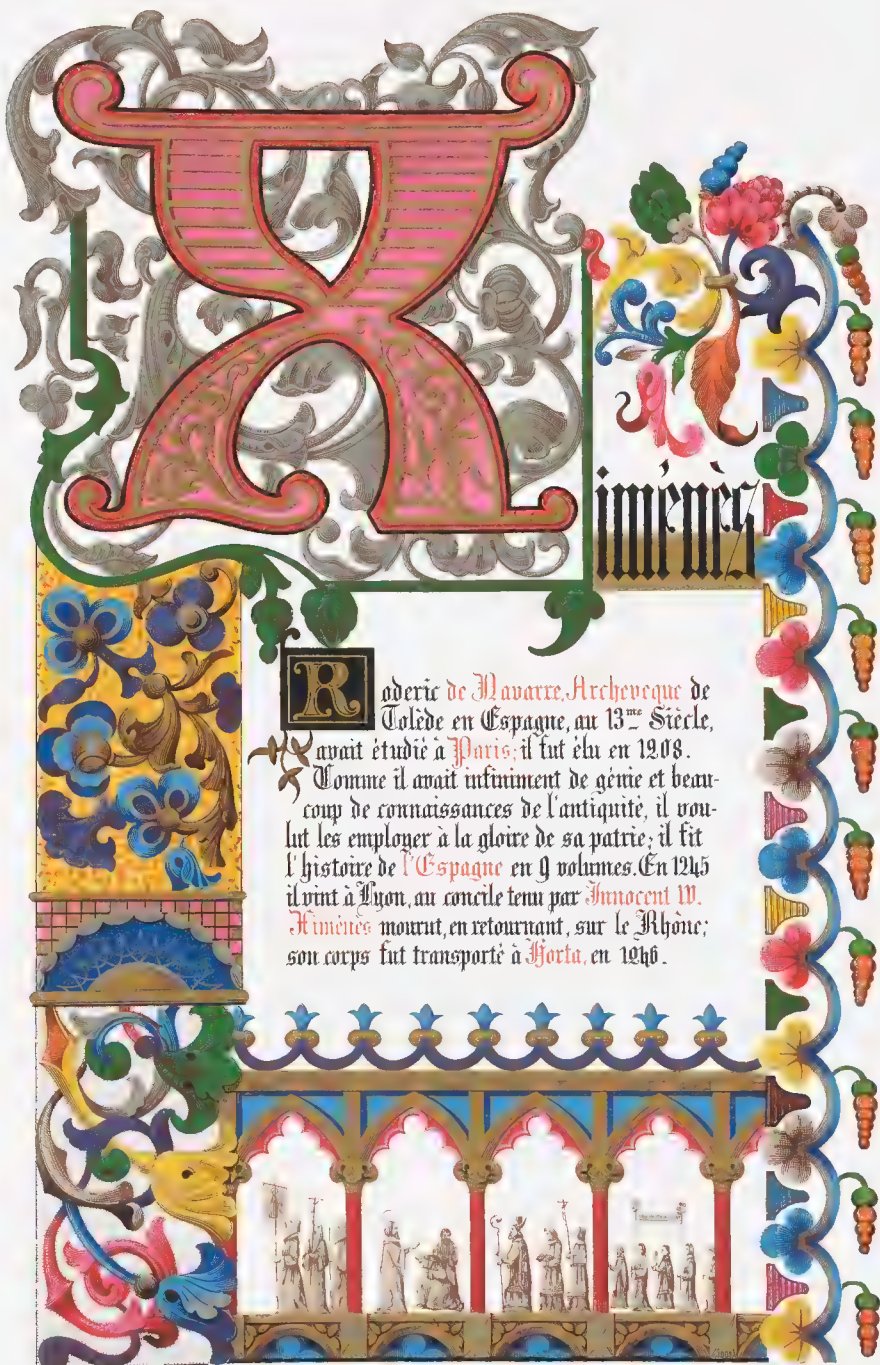 Ximénès
Roderic de Navarre, Archeveque de
Tolède en Espagne, au 13me Siècle,
avait étudié à Paris; il fut élu en 1208.
Comme il avait infiniment de génie et beau-
coup de connaissances de l'antiquité, il vou-
lut les employer à la gloire de sa patrie; il fit
l'histoire de l'Espagne en 9 volumes. En 1245
il vint à Lyon, au concile tenu par Innocent IV.
Ximénès mourut, en retournant, sur le Rhône;
son corps fut transporté à Horta, en 1246.